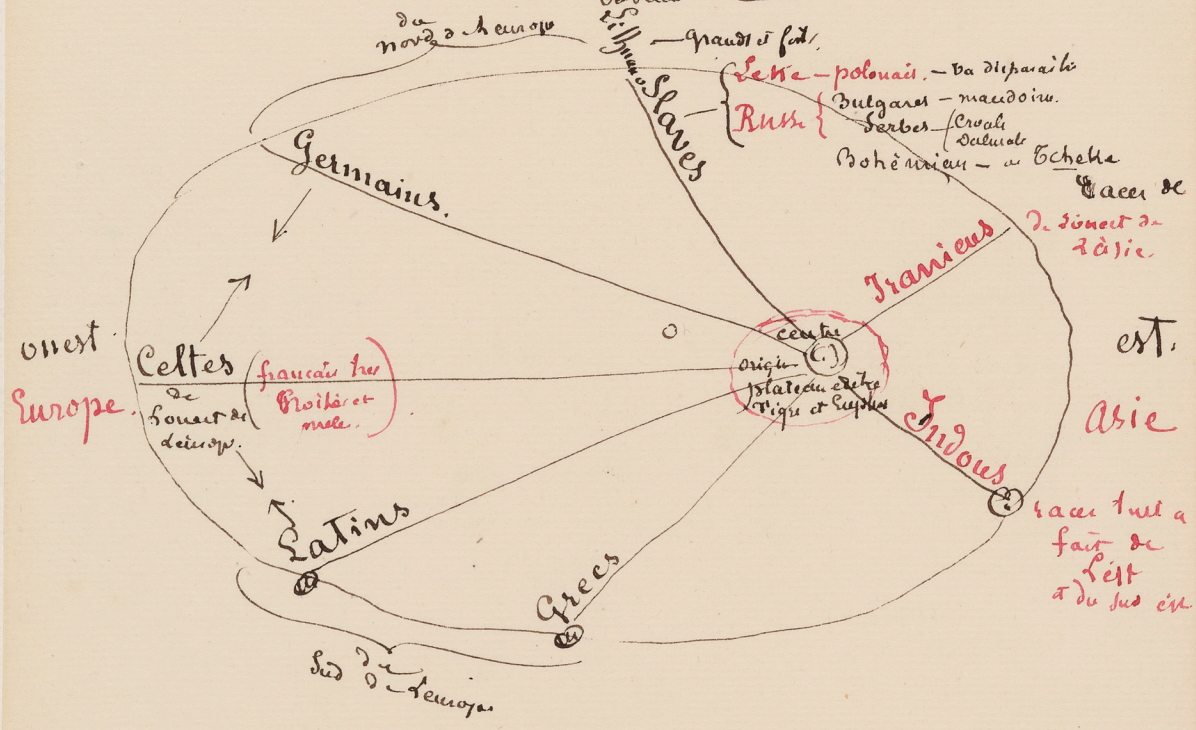 du
nord de l'europe
Lithuano
grands et forts.
Slaves
Lette - polonais. - va disparaitre
Russe
Bulgares - macdoine.
Serbes
Croate
Dalmate
Bohêmien - ou Tcheke
Germains.
races de
de l'ouest de
l'asie.
Iraniens
ouest
Europe.
Celtes
de
l'ouest de
l'europe.
français tres
croisés et
mele.
centre
origine
plateau entre
Tigre et Euphra
est.
Asie
Indous
races tout a
fait de
l'est
et du sud est
Latins
Grecs
du
Sud de l'europe